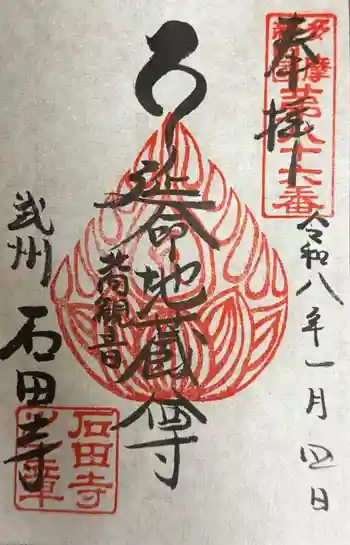 奉拝
多摩
第八十六番
令和八年一月四日
延命地蔵尊
菩観音
武州
石田寺
石田寺